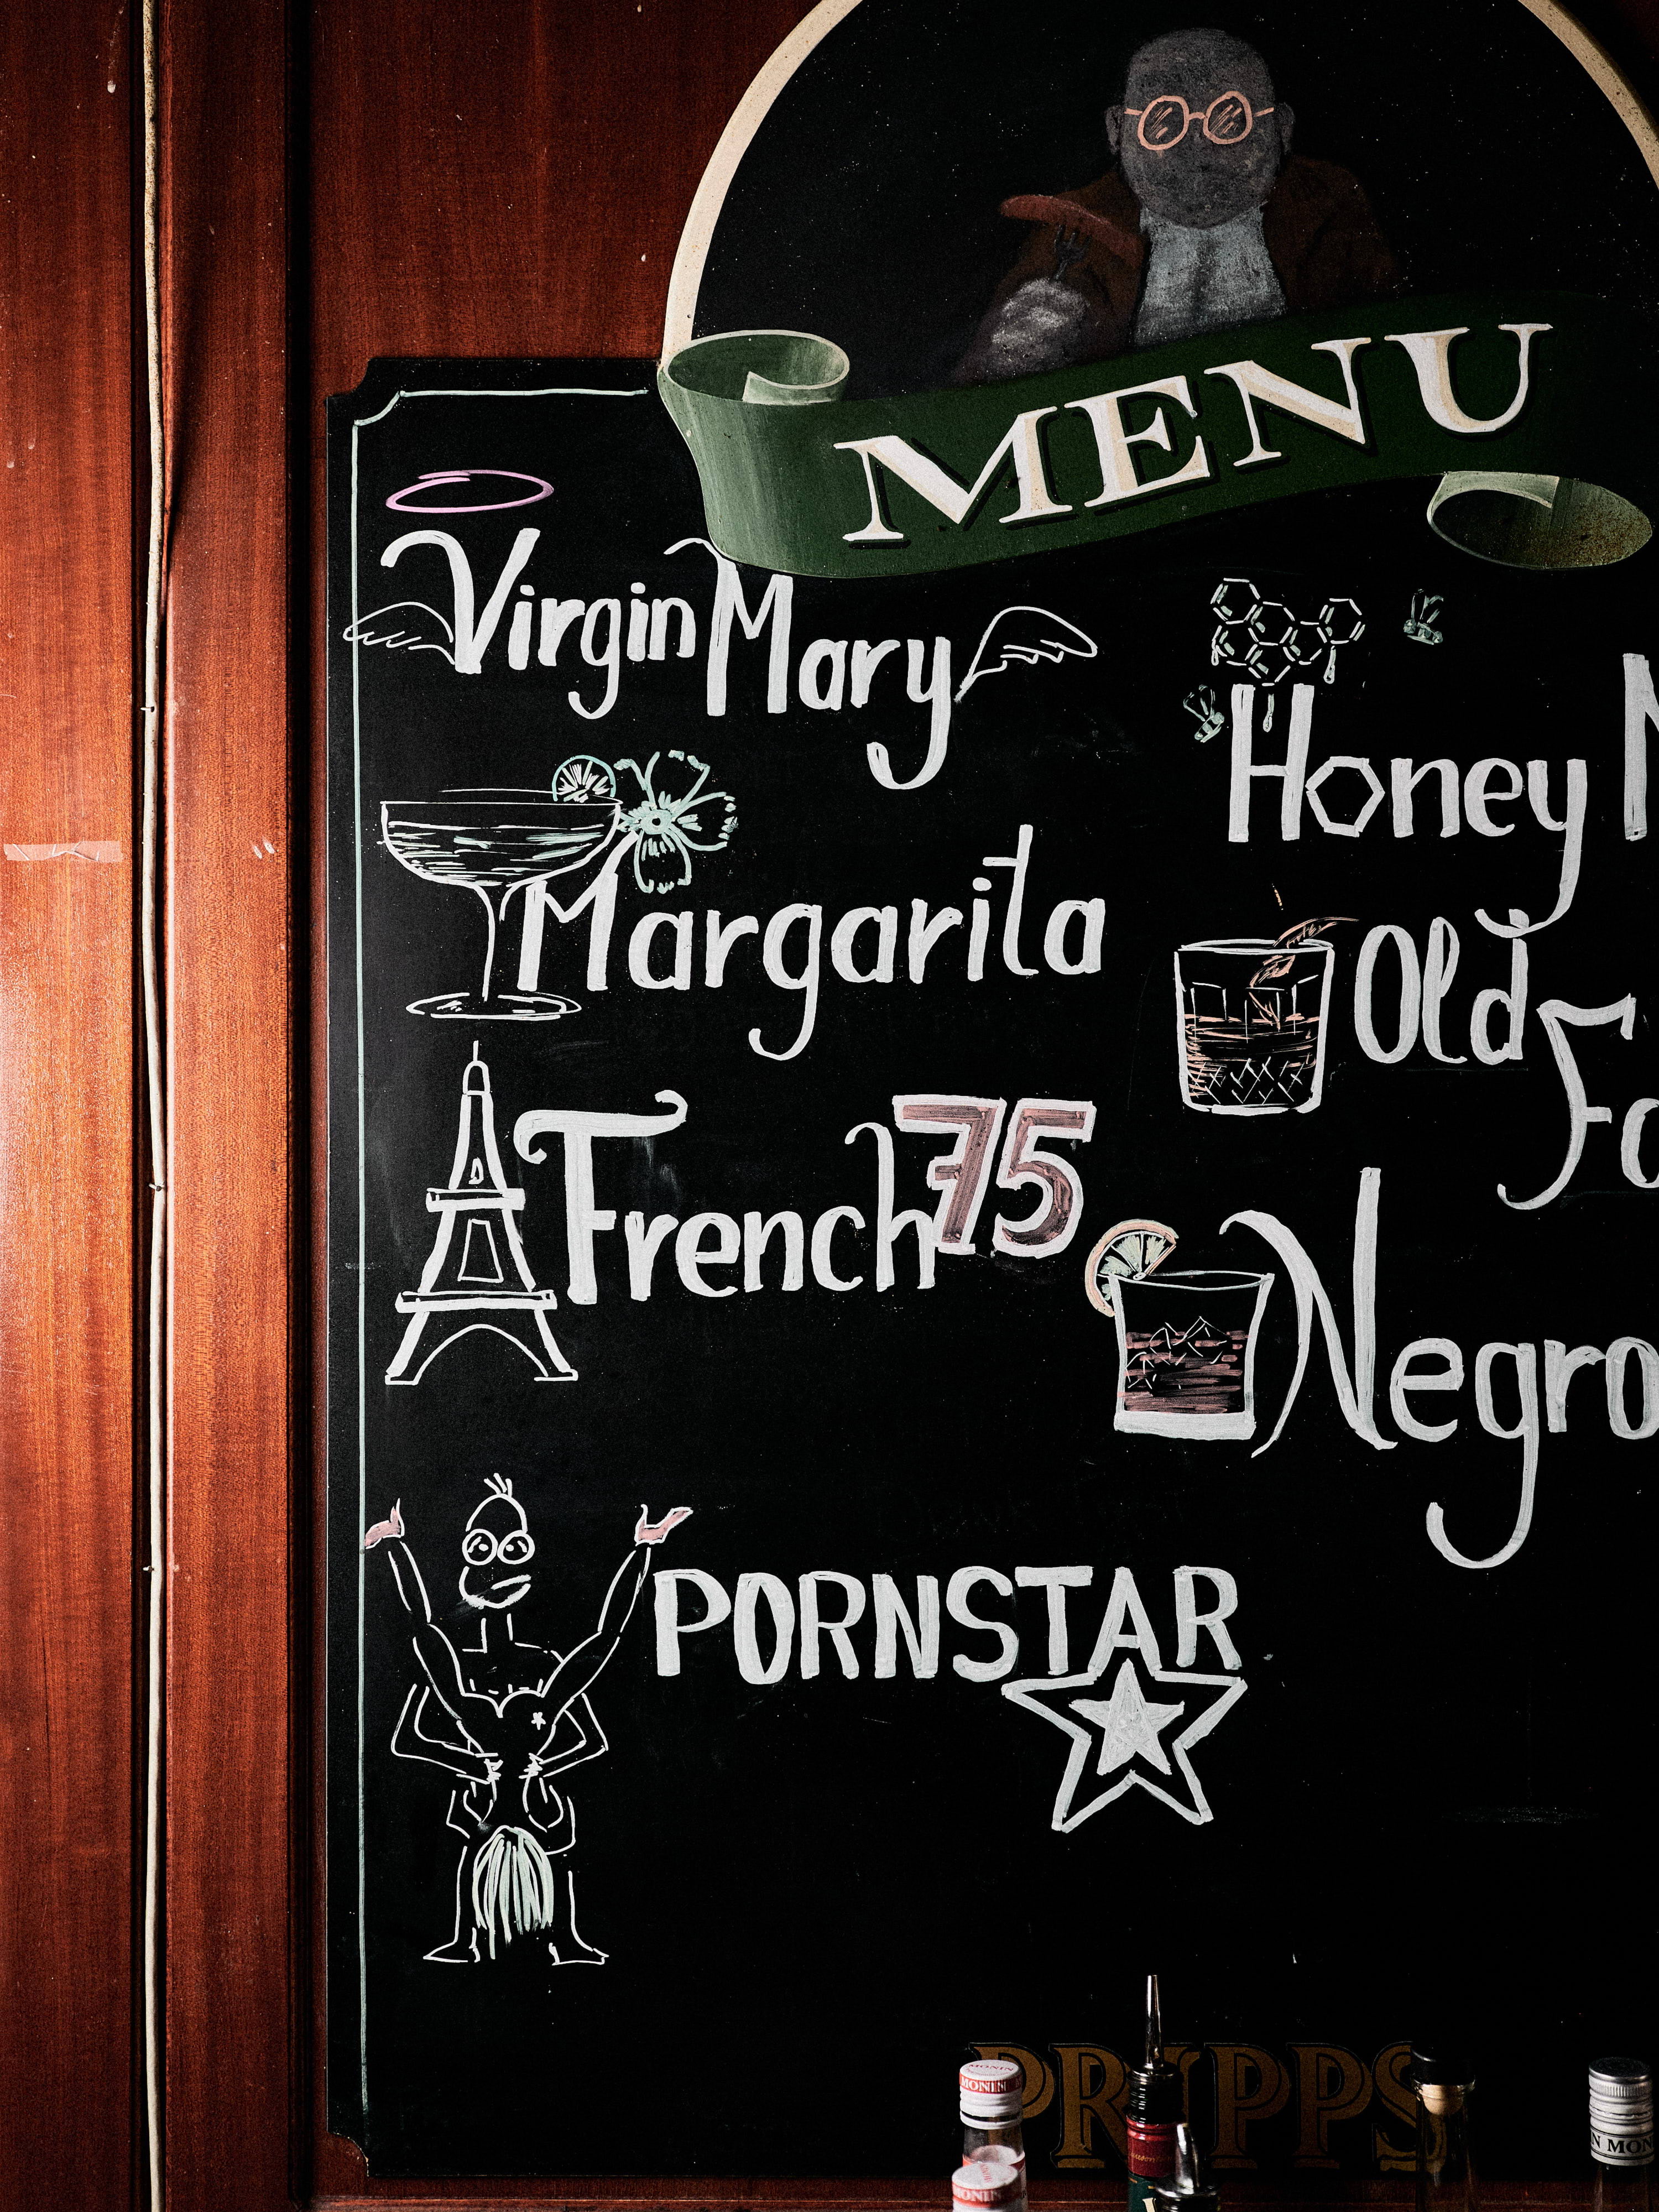 MENU
Virgin Mary
Margarita
French 75
PORNSTAR
Honey
Old
Negro
PRIPPS
MONIN
MONIN